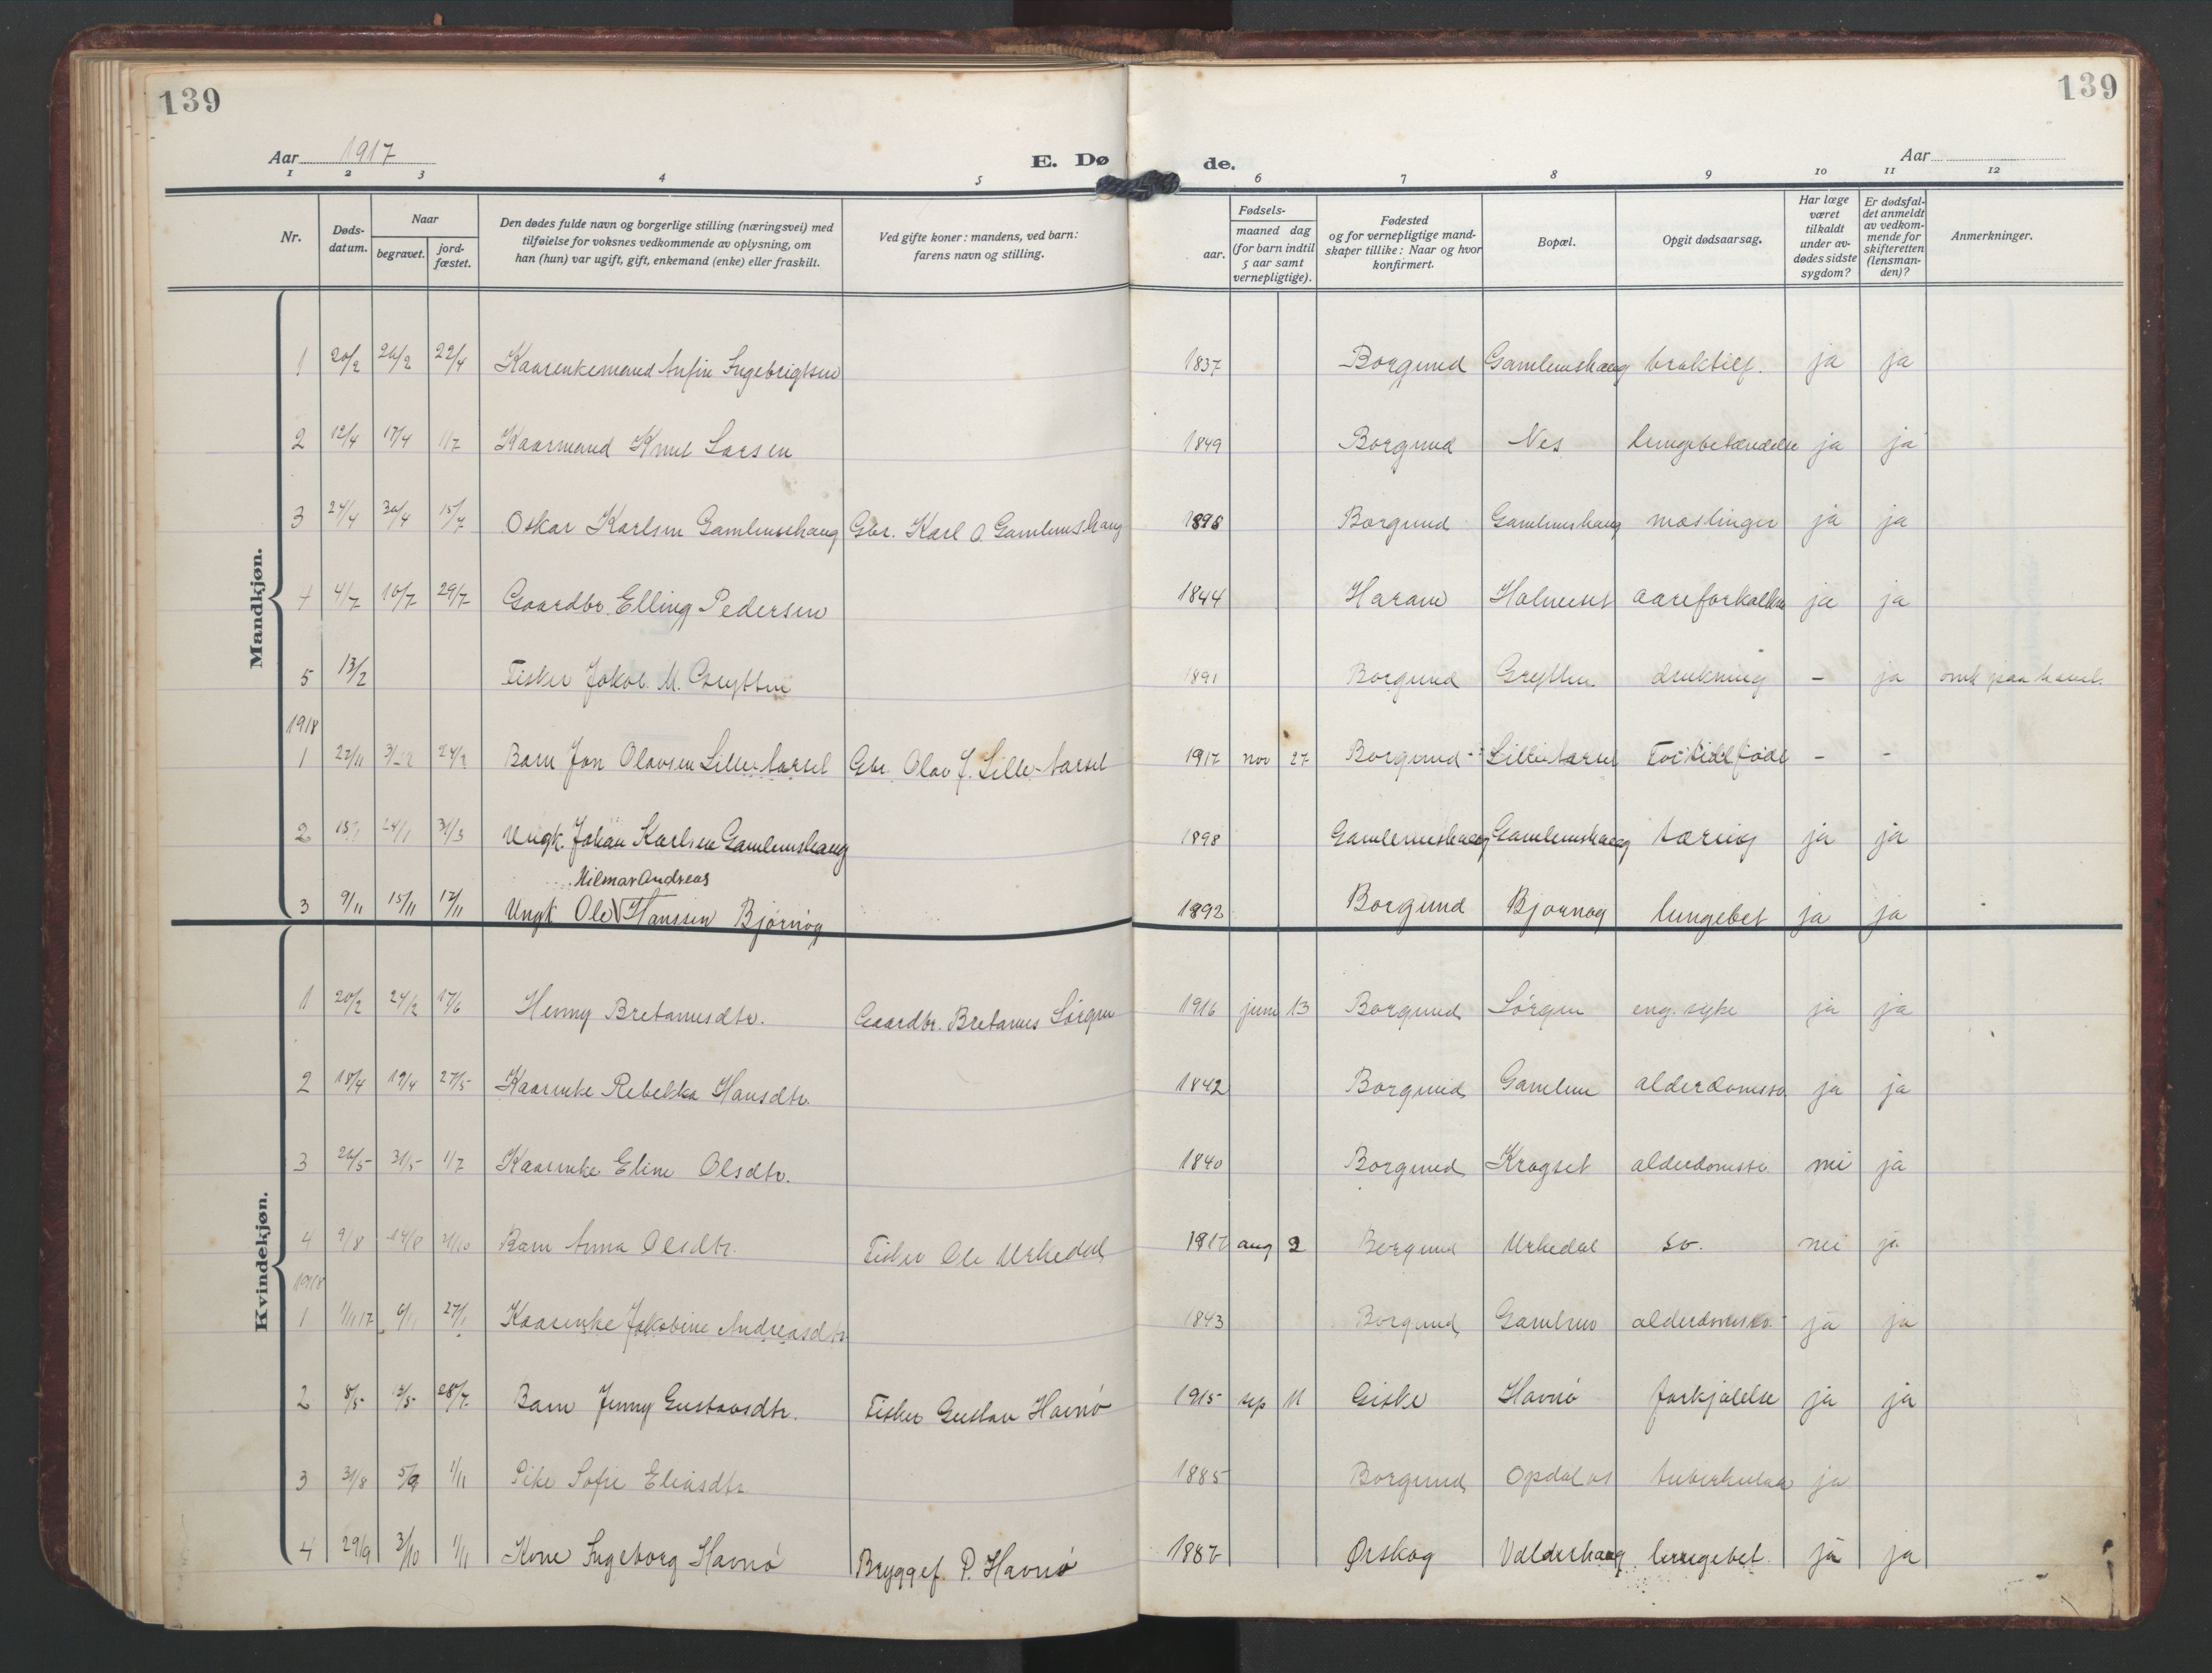 139
139
Aar 1917
E. Dø
de.
Aar
1 2 3 4 5 6 7 8 9 10 11 12
Nr.
Døds-
datum.
Naar
begravet.
jord-
fæstet.
Den dødes fulde navn og borgerlige stilling (næringsvei) med
tilføielse for voksnes vedkommende av oplysning, om
han (hun) var ugift, gift, enkemand (enke) eller fraskilt.
Ved gifte koner: mandens, ved barn:
farens navn og stilling.
Fødsels-
aar.
maaned dag
(for barn indtil
5 aar samt
vernepligtige).
Fødested
og for vernepligtige mand-
skaper tillike: Naar og hvor
konfirmert.
Bopæl.
Opgit dødsaarsag.
Har læge
været
tilkaldt
under av-
dødes sidste
sygdom?
Er dødsfal-
det anmeldt
av vedkom-
mende for
skifteretten
(lensman-
den)?
Anmerkninger.
Mandkjøn.
1 20/2 26/2 22/4 Kaarenkemand Anfin Ingebrigtsen 1837 Borgund Gamlemshaug ja ja
2 12/4 17/4 1/7 Kaarmand Knut Larsen 1849 Borgund Nes lungebetændelse ja ja
3 24/4 30/4 15/7 Oskar Karlsen Gamlemshaug Gbr. Karl O. Gamlemshaug 1896 Borgund Gamlemshaug meslinger ja ja
4 4/7 10/7 29/7 Gaardbr. Elling Pedersen 1844 Haram Holmeset aareforkalkn ja ja
5 13/2 Fisker Jakob M. Grytten 1891 Borgund Grytten drukning - ja omk paa havet.
1918
1 27/11 24/2 Barn Jon Olavsen Lille-Aarset Gbr. Olav J. Lille-Aarset 1917 nov 27 Borgund Lille-Aarset For tidl født - -
2 15/1 24/1 31/3 Ungk. Johan Karlsen Gamlemshaug 1898 Gamlemshaug Gamlemshaug tæring ja ja
Hilmar Andreas
3 9/11 15/11 17/11 Ungk Ole V Hanssen Bjørnøg 1892 Borgund Bjørnøg lungebet ja ja
Kvindekjøn.
1 20/2 24/2 17/6 Henny Bretanusdtr. Gaardbr. Bretanus Sørgen 1916 juni 13 Borgund Sørgen eng. syke ja ja
2 15/4 19/4 27/5 Kaarenke Rebekka Hansdtr. 1842 Borgund Gamlem alderdomssv ja ja
3 26/5 31/5 1/7 Kaarenke Eline Olsdtr. 1840 Borgund Krogset alderdomssv. nei ja
4 9/8 14/8 21/10 Barn Anna Olsdtr. Fisker Ole Urkedal 1917 aug 2 Borgund Urkedal sv. nei ja
1918
1 1/11 17 6/1 27/1 Kaarenke Jakobine Andreasdtr 1843 Borgund Gamlem alderdomssv. ja ja
2 8/5 13/5 28/7 Barn Jenny Gustavsdtr. Fisker Gustav Havnø 1915 sep 11 Giske Havnø forkjølelse ja ja
3 31/8 5/9 1/11 Pike Sofie Eliasdtr 1885 Borgund Opdal tuberkulose ja
4 29/9 3/10 1/11 Kone Ingeborg Havnø Bryggef. P. Havnø 1887 Ørskog Valderhaug lungebet. ja ja